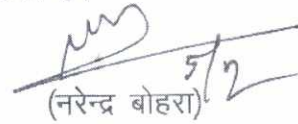 5/2
(नरेन्द्र बोहरा)